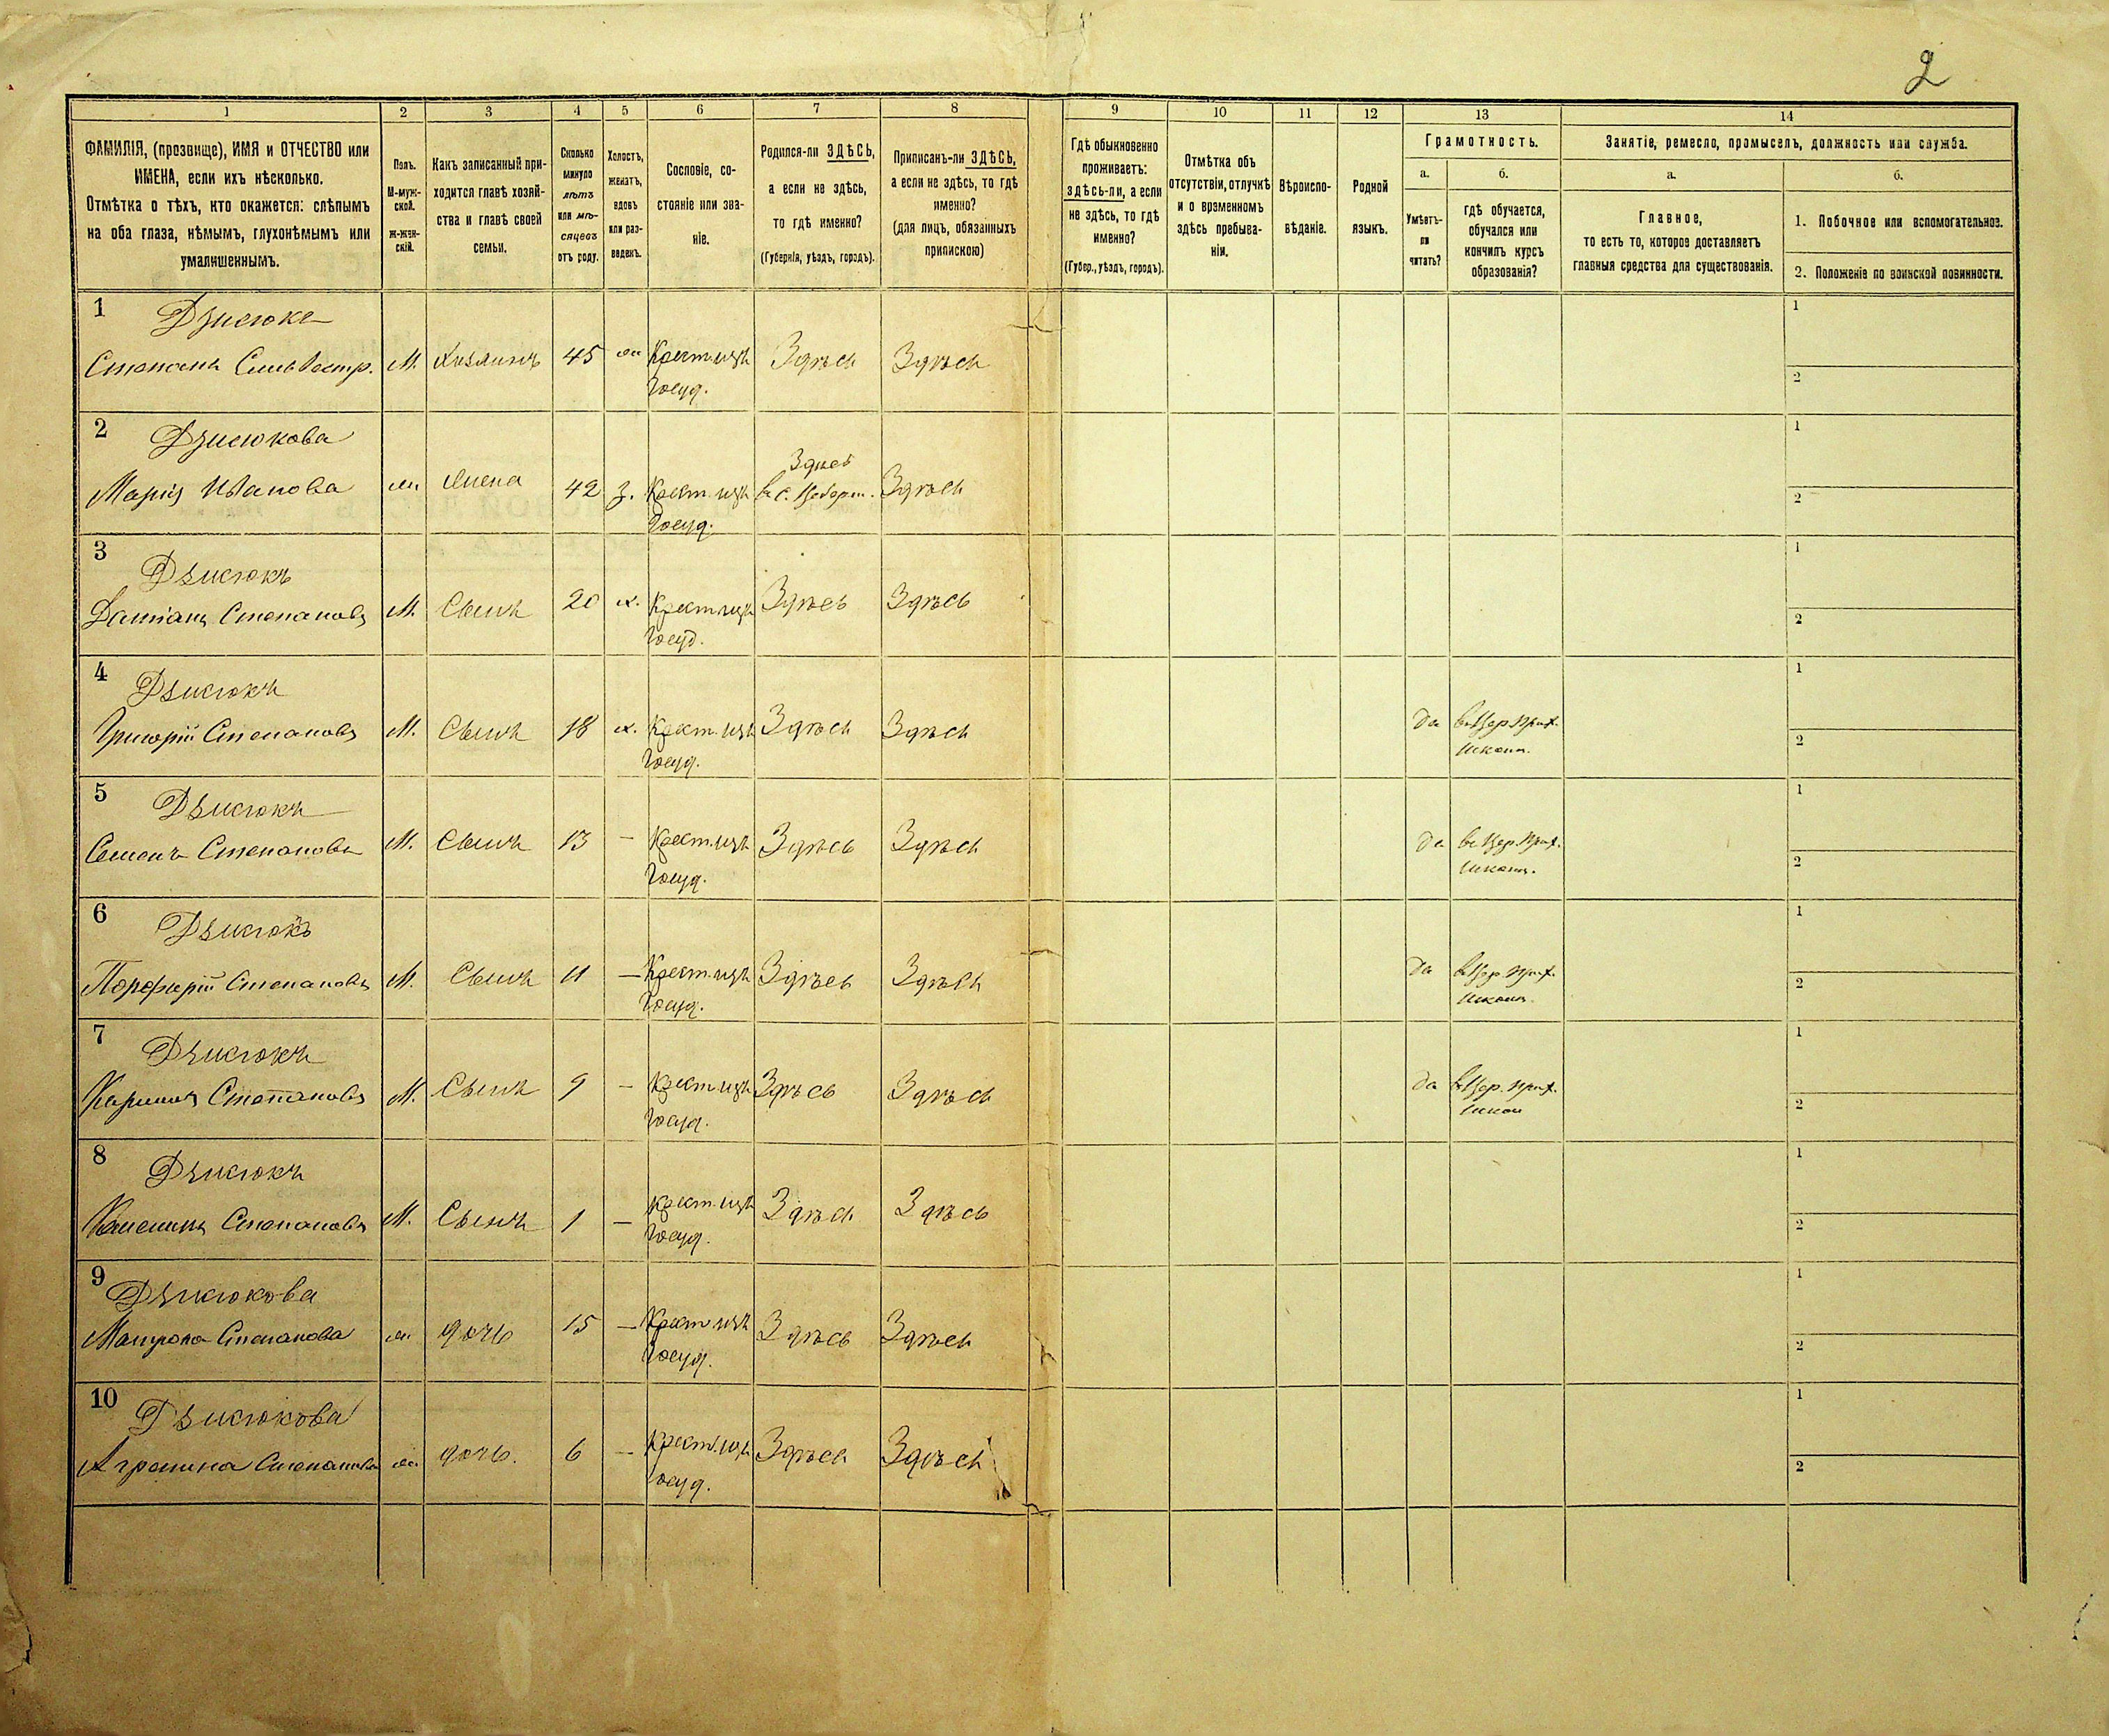 2
1 2 3 4 5 6 7 8 9 10 11 12 13 14
ФАМИЛІЯ, (прозвище), ИМЯ и ОТЧЕСТВО или
ИМЕНА, если ихъ нѣсколько.
Отмѣтка о тѣхъ, кто окажется: слѣпымъ
на оба глаза, нѣмымъ, глухонѣмымъ или
умалишеннымъ.
Полъ.
М-муж-
ской.
Ж-жен-
скій.
Какъ записанный при-
ходится главѣ хозяй-
ства и главѣ своей
семьи.
Сколько
минуло
лѣтъ
или мѣ-
сяцевъ
отъ роду.
Холостъ,
женатъ,
вдовъ
или раз-
веденъ.
Сословіе, со-
стояніе или зва-
ніе.
Родился-ли ЗДѢСЬ,
а если не здѣсь,
то гдѣ именно?
(Губернія, уѣздъ, городъ).
Приписанъ-ли ЗДѢСЬ,
а если не здѣсь, то гдѣ
именно?
(для лицъ, обязанныхъ
припискою)
Гдѣ обыкновенно
проживаетъ:
здѣсь-ли, а если
не здѣсь, то гдѣ
именно?
(Губер., уѣздъ, городъ).
Отмѣтка объ
отсутствіи, отлучкѣ
и о временномъ
здѣсь пребыва-
ніи.
Вѣроиспо-
вѣданіе.
Родной
языкъ.
Грамотность.
а.
Умѣетъ-
ли
читать?
б.
гдѣ обучается,
обучался или
кончилъ курсъ
образованія?
Занятіе, ремесло, промыселъ, должность или служба.
а.
Главное,
то есть то, которое доставляетъ
главныя средства для существованія.
б.
1. Побочное или вспомогательное.
2. Положеніе по воинской повинности.
1 Дзисюкъ 1
Степанъ Сильвестр. М. Хозяинъ 45 Крест. изъ Здѣсь Здѣсь
Госуд. 2
2 Дзисюкова 1
Здѣсь
Марія Иванова ж жена 42 з. Крест. изъ въ с. Здѣсь 2
Госуд.
3 Дзисюкъ 1
Даміанъ Степановъ М. Сынъ 20 х. Крест. изъ Здѣсь Здѣсь 2
Госуд.
4 Дзисюкъ 1
Григорій Степановъ М. Сынъ 18 х. Крест. изъ Здѣсь Здѣсь да въ Цер. Прих. 2
Госуд. Школ.
5 Дзисюкъ 1
Семенъ Степановъ М. Сынъ 13 — Крест. изъ Здѣсь Здѣсь да въ Цер. Прих. 2
Госуд. Школ.
6 Дзисюкъ 1
Порфирій Степановъ М. Сынъ 11 — Крест. изъ Здѣсь Здѣсь да въ Цер. Прих. 2
Госуд. Школ.
7 Дзисюкъ 1
Степановъ М. Сынъ 9 — Крест. изъ Здѣсь Здѣсь да въ Цер. Прих. 2
Госуд. Школ
8 Дзисюкъ 1
Степановъ М. Сынъ 1 — Крест. изъ Здѣсь Здѣсь 2
Госуд.
9 Дзисюкова 1
Матрона Степанова ж дочь 15 — Крест. изъ Здѣсь Здѣсь 2
Госуд.
10 Дзисюкова 1
Агрипина Степанова ж дочь. 6 — Крест. изъ Здѣсь Здѣсь 2
Госуд.